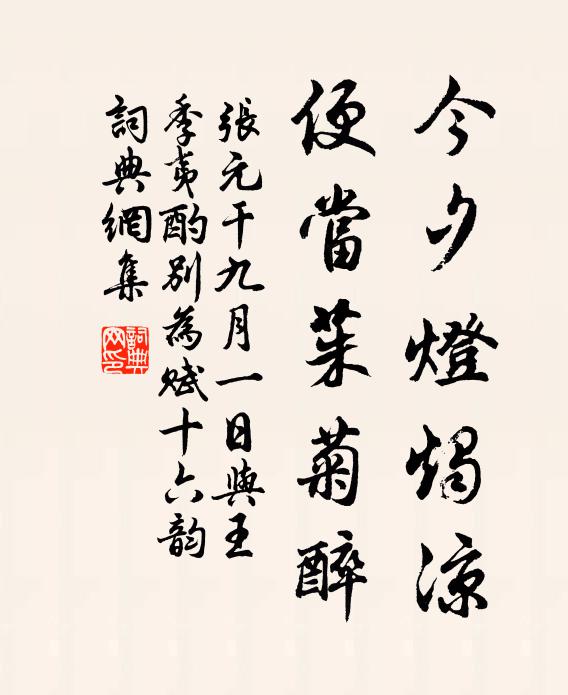 今夕燈燭涼
便當茱菊醉
張元干九月一日與王
季夷酌別為賦十六韵
詞典網集
詞典網印